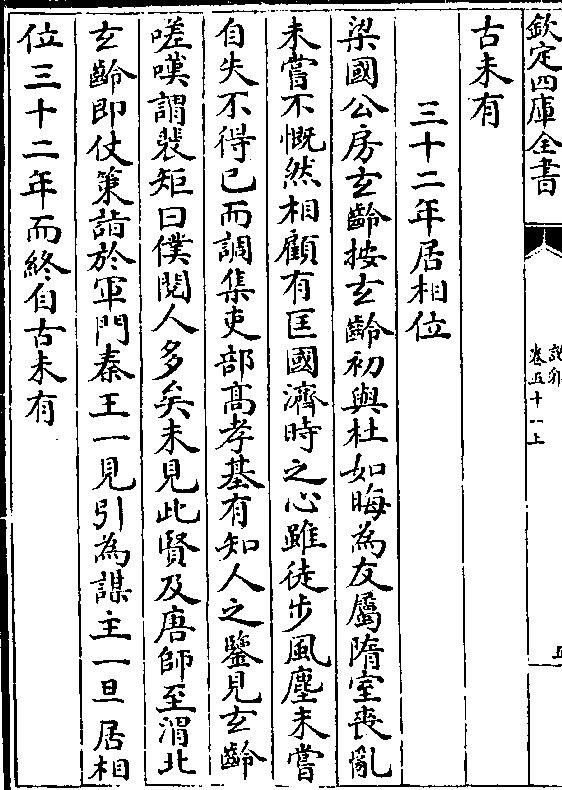 欽定四庫全書
說郛
卷五十一上
五
古未有
三十二年居相位
梁國公房𤣥齡按𤣥齡初與杜如晦為友屬隋室喪亂
未嘗不慨然相顧有匡國濟時之心雖徒步風塵未嘗
自失不得已而調集吏部髙孝基有知人之鑒見𤣥齡
嗟嘆謂裴矩曰僕閱人多矣未見此賢及唐師至渭北
𤣥齡即仗䇿詣於軍門秦王一見引為謀主一旦居相
位三十二年而終自古未有